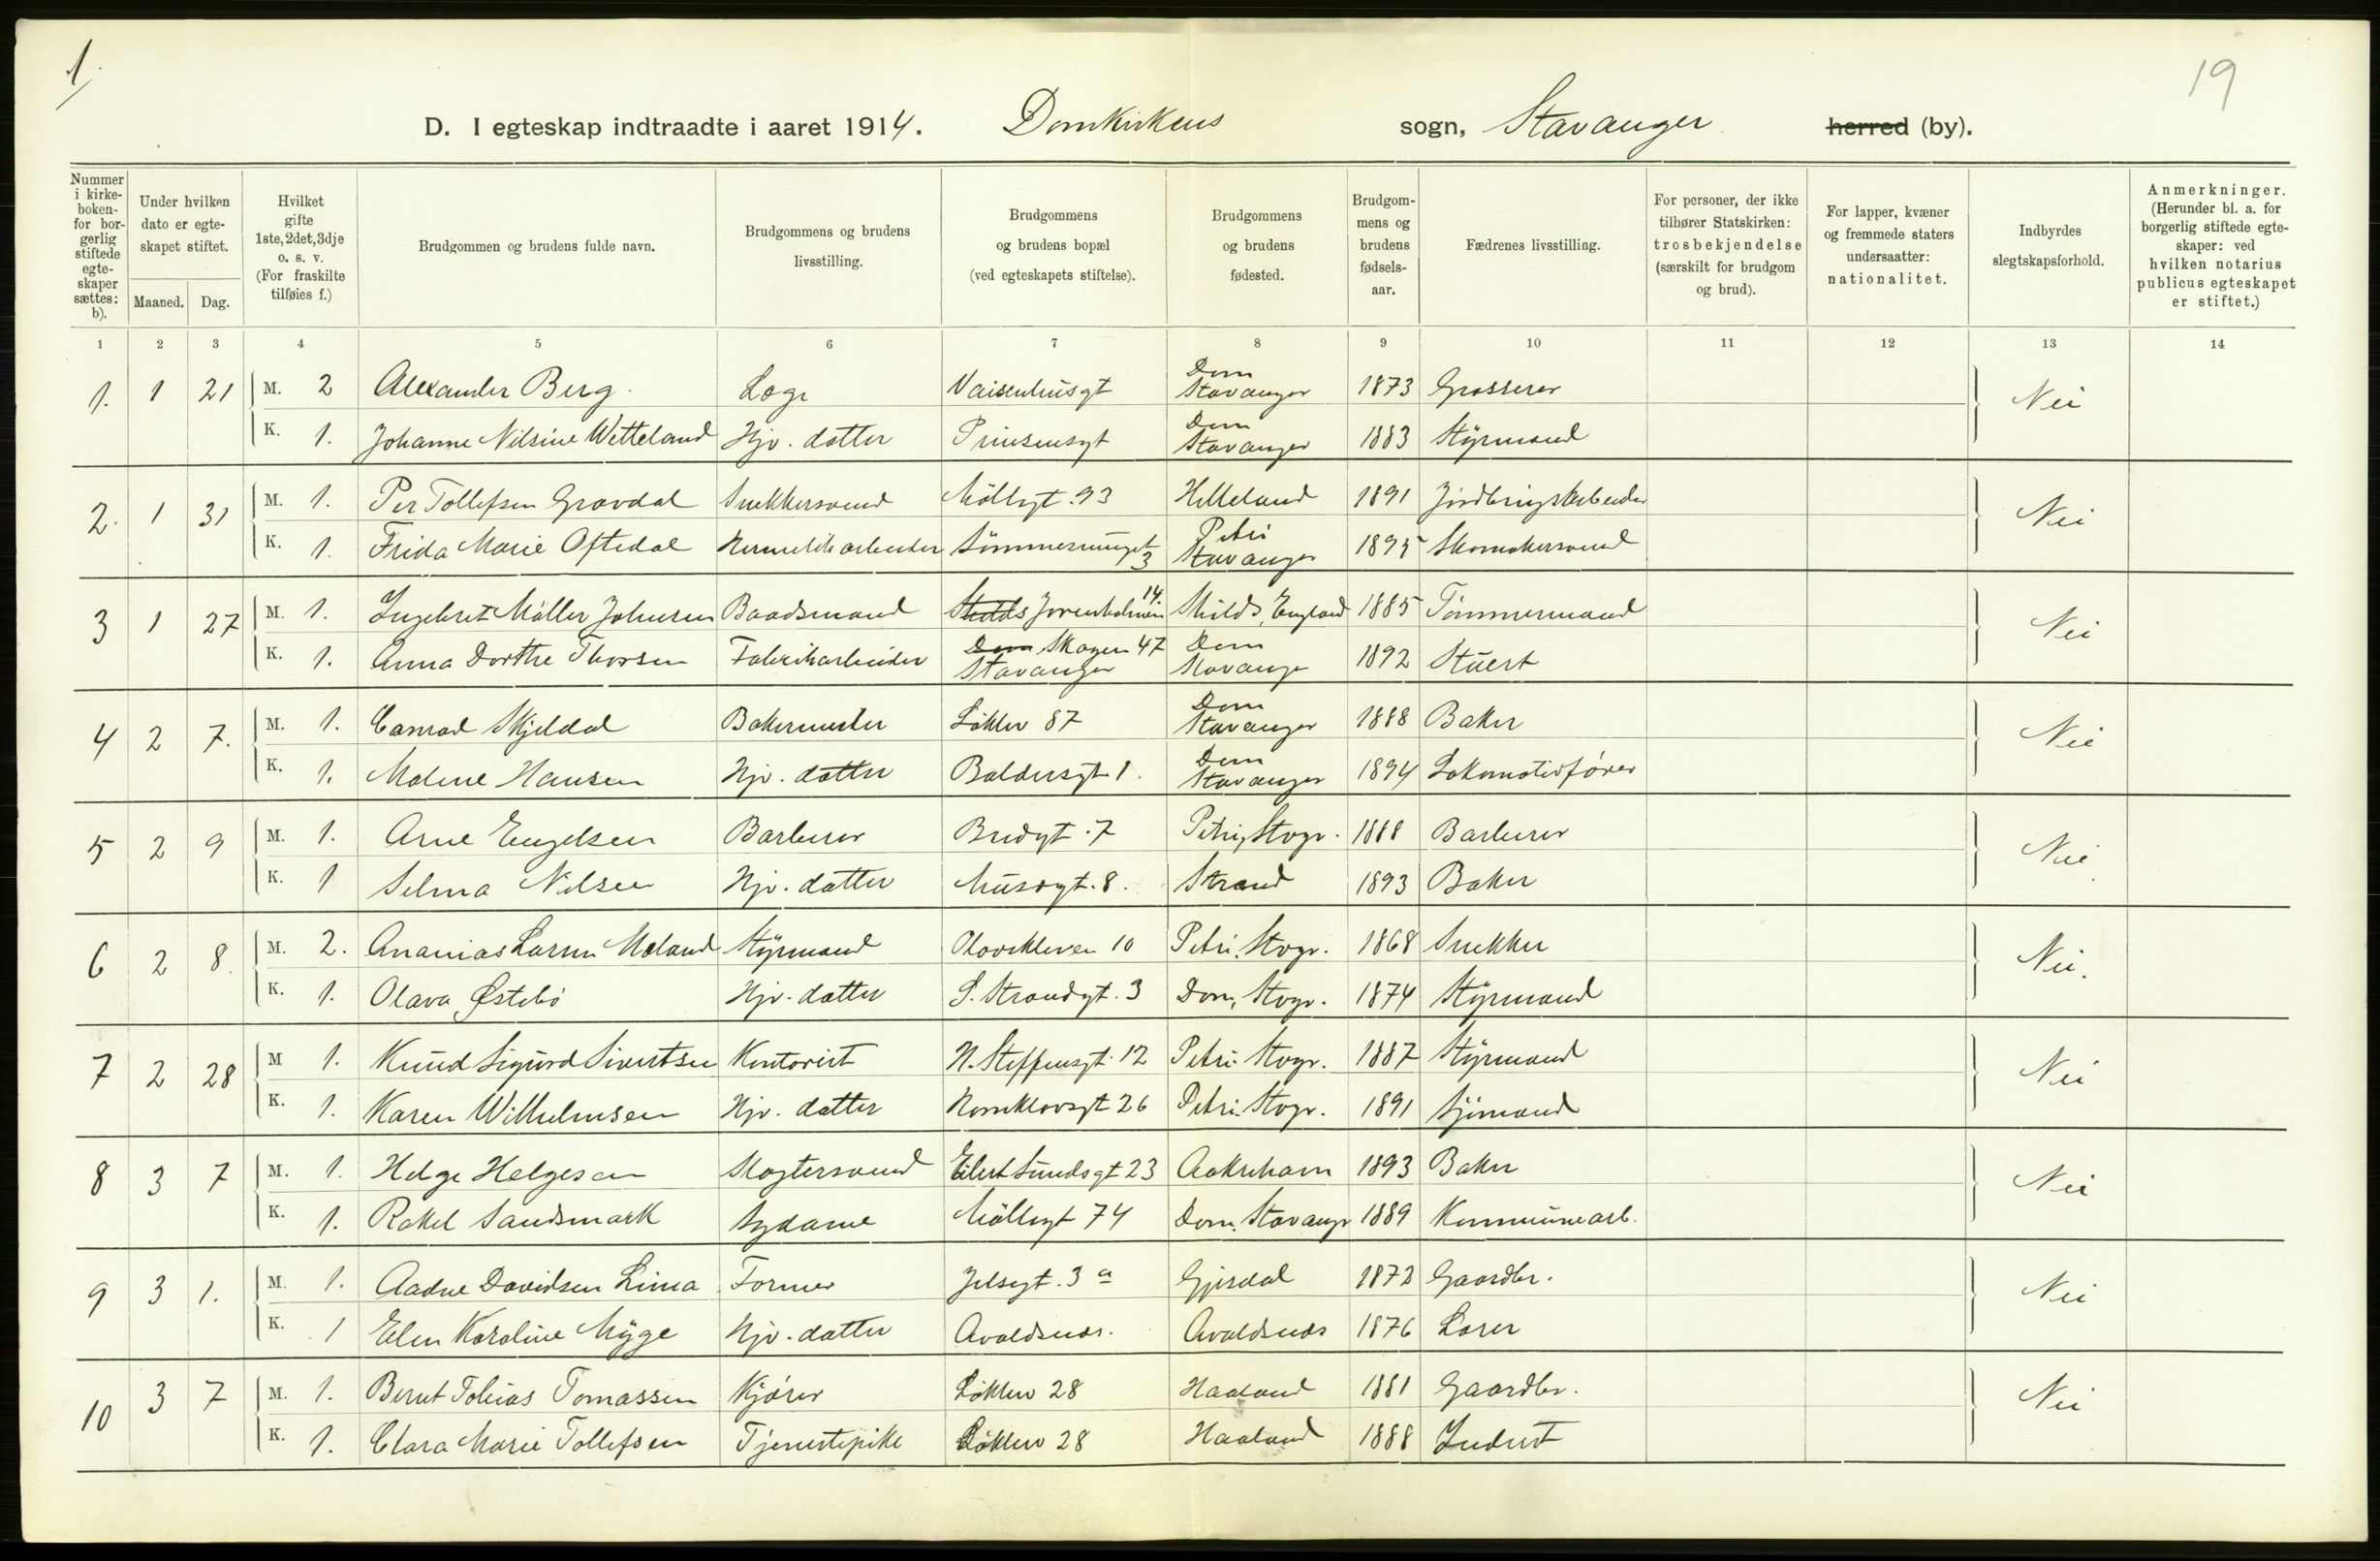 1.
19
D. I egteskap indtraadte i aaret 1914. Domkirkens sogn, Stavanger herred (by).
Nummer i kirke-boken- for bor-gerlig stiftede egte-skaper sættes: b).
Under hvilken dato er egte-skapet stiftet.
Maaned. Dag.
Hvilket gifte 1ste, 2det, 3dje o. s. v. (For fraskilte tilføies f.)
Brudgommen og brudens fulde navn.
Brudgommens og brudens livsstilling.
Brudgommens og brudens bopæl (ved egteskapets stiftelse).
Brudgommens og brudens fødested.
Brudgom-mens og brudens fødsels-aar.
Fædrenes livsstilling.
For personer, der ikke tilhører Statskirken: trosbekjendelse (særskilt for brudgom og brud).
For lapper, kvæner og fremmede staters undersaatter: nationalitet.
Indbyrdes slegtskapsforhold.
Anmerkninger. (Herunder bl. a. for borgerlig stiftede egte-skaper: ved hvilken notarius publicus egteskapet er stiftet.)
1 2 3 4 5 6 7 8 9 10 11 12 13 14
1. 1 21 M. 2 Alexander Berg. Læge Vaisenhusgt Dom Stavanger 1873 Grosserer Nei
K. 1. Johanne Nilsine Wetteland Hjv. datter Prinsensgt Dom Stavanger 1883 Styrmand
2. 1 31 M. 1. Per Tollefsen Gravdal Snekkersvend Möllegt. 93 Helleland 1891 Nei
K. 1. Frida Marie Oftedal Hermetikarbeider 3 Petri Stavanger 1895 Skomakersvend
3 1 27 M. 1. Ingebret Möller Johnsen Baadsmand Shilds Jorenholmen 14. Shilds, England 1885 Tömmermand Nei
K. 1. Anna Dorthe Thorsen Fabrikarbeider Dom Skagen 47 Stavanger Dom Stavanger 1892 Stuert
4 2 7. M. 1. Conrad Skjeldal Bakermester Lökkev 87 Dom Stavanger 1888 Baker Nei
K. 1. Malene Hansen Hjv. datter Baldersgt 1. Dom Stavanger 1894 Lokomotivförer
5 2 9 M. 1. Arne Engelsen Barberer Bredgt. 7 Petri, Stvgr. 1888 Barberer Nei
K. 1 Selma Nilsen Hjv. datter Musægt. 8. Strand 1893 Baker
6 2 8. M. 2. Ananias Larsen Meland Styrmand Olavskleven 10 Petri. Stvgr. 1868 Snekker Nei.
K. 1. Olava Østebö Hjv. datter S. Strandgt. 3 Dom, Stvgr. 1874 Styrmand
7 2 28 M 1. Knud Sigurd Sivertsen Kontorist N. Steffensgt. 12 Petri Stvgr. 1887 Styrmand Nei
K. 1. Karen Wilhelmsen Hjv. datter Hornklovsgt 26 Petri Stvgr. 1891 Sjömand
8 3 7 M. 1. Helge Helgesen Slagtersvend Eilert Sundsgt 23 Aakrehavn 1893 Baker Nei
K. 1. Rakel Sandsmark Sydame Möllegt 74 Dom. Stavanger 1889 Kommunearb.
9 3 1. M. 1. Aadne Davidsen Lima Former Jelsegt. 3 a Gjesdal 1872 Gaardbr. Nei
K. 1 Elen Karoline Myge Hjv. datter Avaldsnes. Avaldsnes 1876 Lærer
10 3 7 M. 1. Bernt Tobias Tomassen Kjörer Lökkev 28 Haaland 1881 Gaardbr. Nei
K. 1. Clara Marie Tollefsen Tjenestepike Lökkev 28 Haaland 1888 Inderst